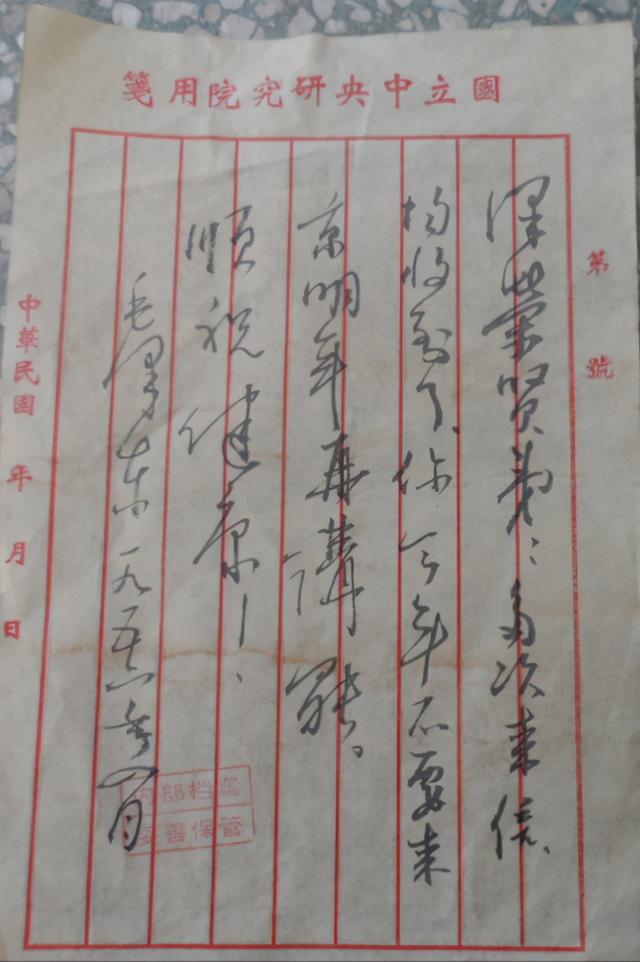 國立中央研究院用箋
第 號
澤荣贤弟：多次来信、
均收到了、你今年不要来
京明年再講罷。
順祝健康！
毛澤东 一九五六年八月
中華民國 年 月 日
内部档案
妥善保管